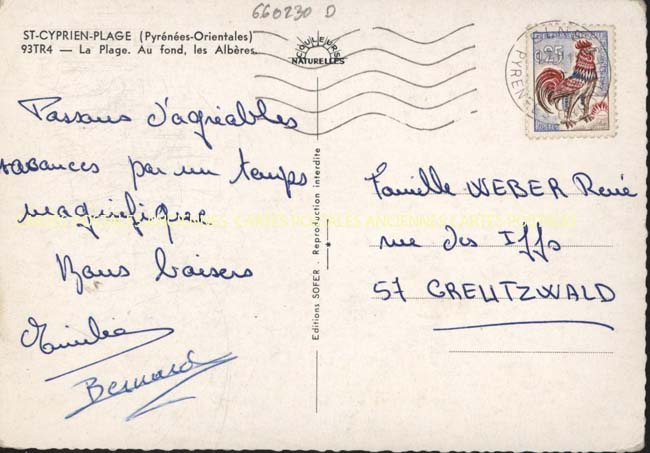 660230 D
ST-CYPRIEN-PLAGE (Pyrénées-Orientales)
93TR4 — La Plage. Au fond, les Albères.
COULEURS
NATURELLES
0,25
PYRENE
Passons d'agréables
vacances par un temps
magnifique
Bons baisers
Emilie
Bernard
Editions SOFER - Reproduction interdite
CARTES POSTALES ANCIENNES CARTES POSTALES
Famille WEBER René
rue des Iffs
57 CREUTZWALD